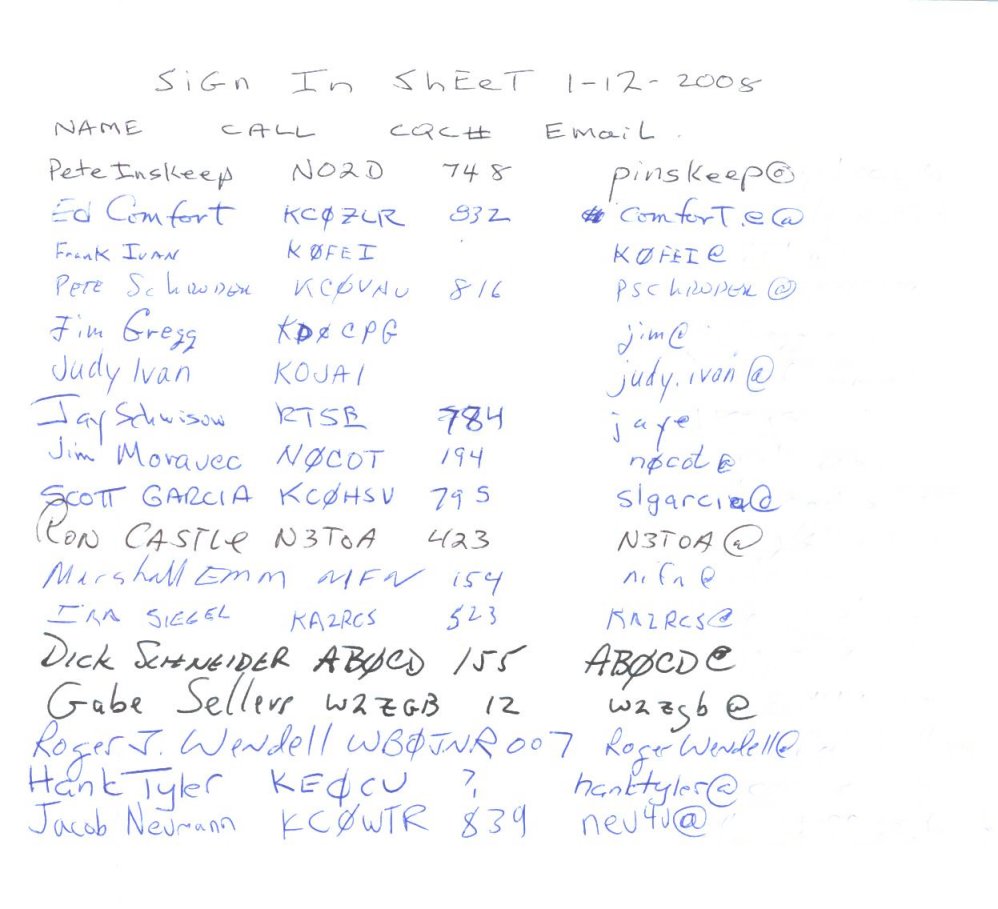 SiGn In ShEeT 1-12-2008
NAME CALL CQC# Email
Pete Inskeep NO2D 748 pinskeep@
Ed Comfort KCØZLR 932 comforT.e@
Frank Ivan KØFEI KØFEI@
Pete Schroder KCØVNU 816 PSchroder@
Jim Gregg KDØCPG jim@
Judy Ivan K0JAI judy.ivan@
Jay Schwisow KT5E 784 jay@
Jim Moravec NØCOT 194 nøcot@
SCOTT GARCIA KCØHSV 795 slgarcia@
RON CASTLe N3TOA 423 N3TOA@
Marshall Emm N1FN 154 n1fn@
IRA SIEGEL KA2RCS 523 KA2RCS@
Dick SCHNEIDER ABØCD 155 ABØCD@
Gabe Sellers W2ZGB 12 w2zgb@
Roger J. Wendell WBØJNR 007 RogerWendell@
Hank Tyler KEØCU ? hanktyler@
Jacob Neumann KCØWTR 839 neu4u@